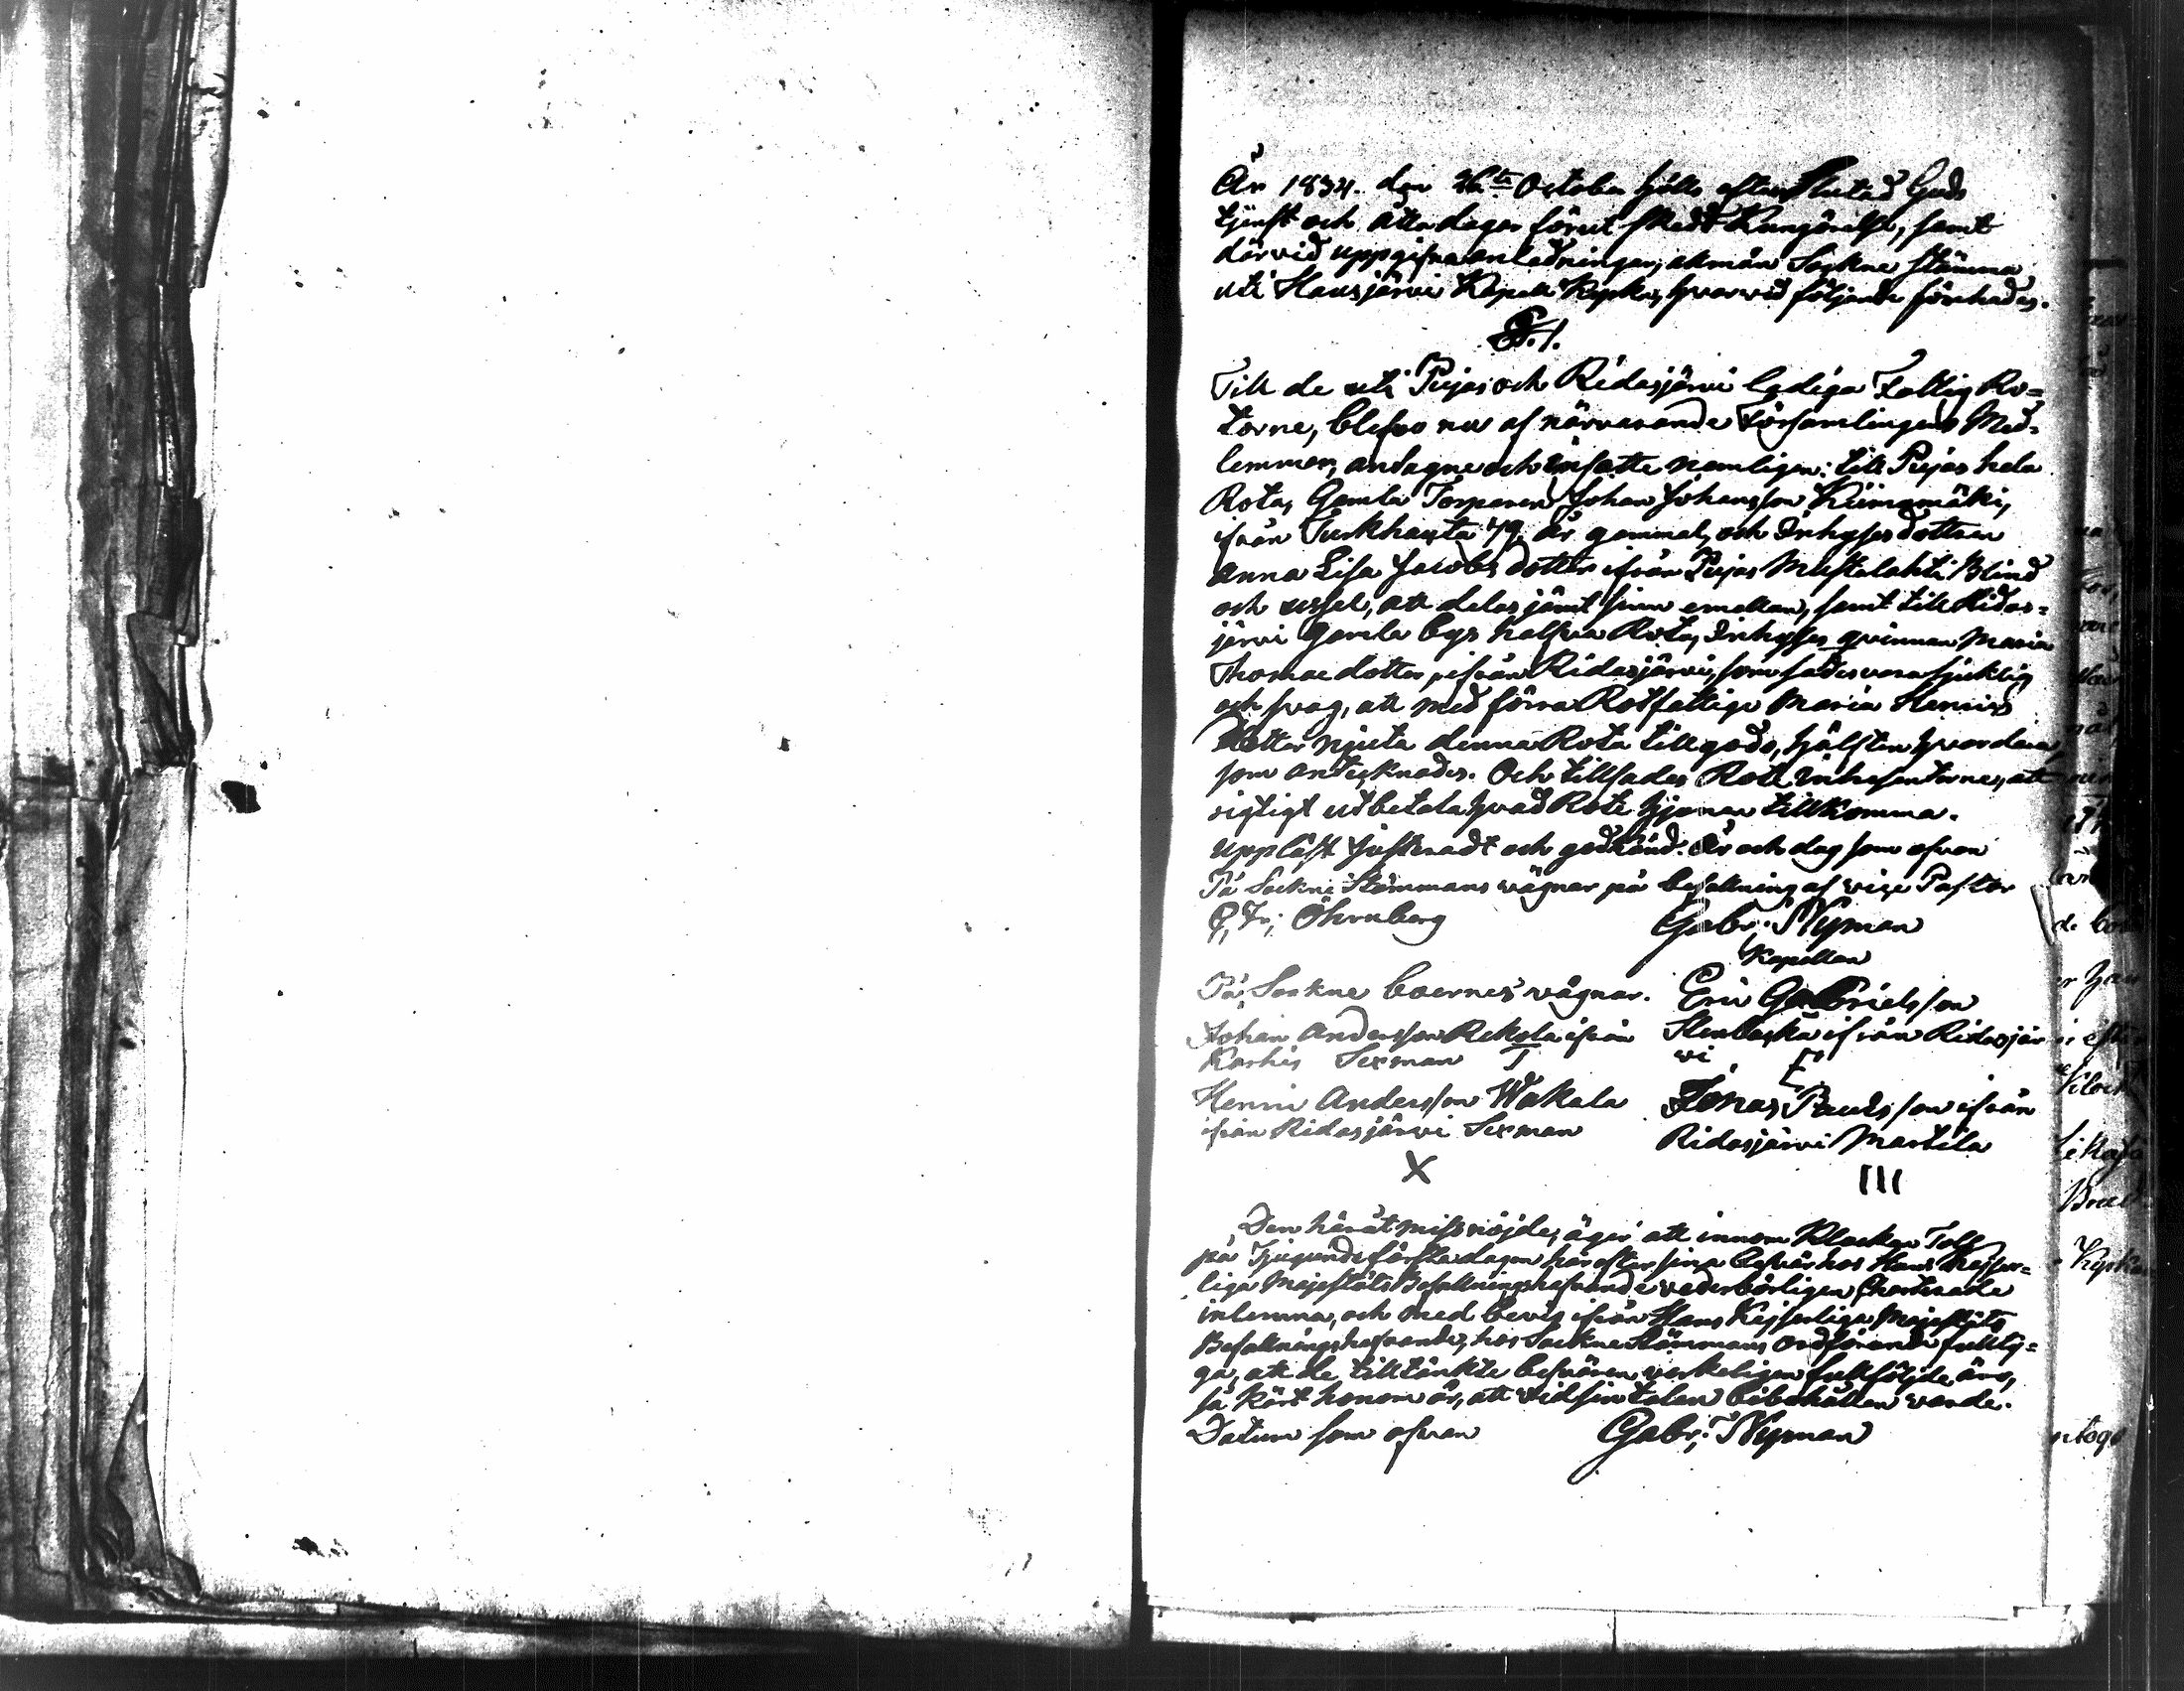 År 1834. den 26te October hölls efter slutad Guds
tjenst och åtta dagar förut skedt Kungörelse, samt
därvid uppgifna anledningar, allmän Sockne stämma,
uti Hausjärvi Kapell Kyrka, hvarvid följande förehades.
§.1.
Till de uti Pujas och Ridasjärvi lediga Fattig Ro=
torne, blefvo nu af närvarande Församlingens Med=
lemmar, antagne och insatte nemligen: till Pujas hela
Rota, Gamla Torparen Johan Johansson Kiimamäki,
ifrån Turkhauta 79 År gammal, och Inhyses dottren
Anna Lisa Jacobs dotter ifrån Pujas Mustalahti Blind
och ussel, att delas jämt sinn emellan, samt till Ridas=
järvi Gamla bys halfva Rota, Inhyses qvinnan Maria
Thomae dotter, ifrån Ridasjärvi, som sades vara sjuklig
och svag, att med förra Rotfattige Maria Henrics
dotter njuta denna Rota tillgodo, hälften hvardera,
som antecknades. Och tillsades Rote inhefvatorne, att
rigtigt utbetala hvad Rote hjonen tillkomma.
Uppläst justeradt och godkänd. År och dag som ofvan
På Sockne Stämmans vägnar på befallning af vice Pastor
Fr; Öhrnberg Gabr; Nyman
Kapellan
På Sockne boernes vägnar. Eric Gabrielsson
Johan Andersson Rekola ifrån Stenbacka ifrån Ridasjär
Karhis Sexman T vi E
Henric Andersson Wakala Jonas Paulsson ifrån
ifrån Ridasjärvi Sexman Ridasjärvi Martila
X III
Den häråt missnöjde, äger att innom Klockan Tolf
på Tjugundeförsta dagen härefter sina besvär hos Hans Kejser=
liga Majestäts Befallningshafvande vederbörligen Charterade
inlemna, och med bevis ifrån Hans Kejserliga Majestäts
Befallningshafvande, hos Sockne Stämmans ordförande fullty=
ga, att de tilltänkte besvären verkeligen fullföljde äro,
så kärt honom är, att vid sin talan bibehållen varde.
Datum som ofvan Gabr; Nyman